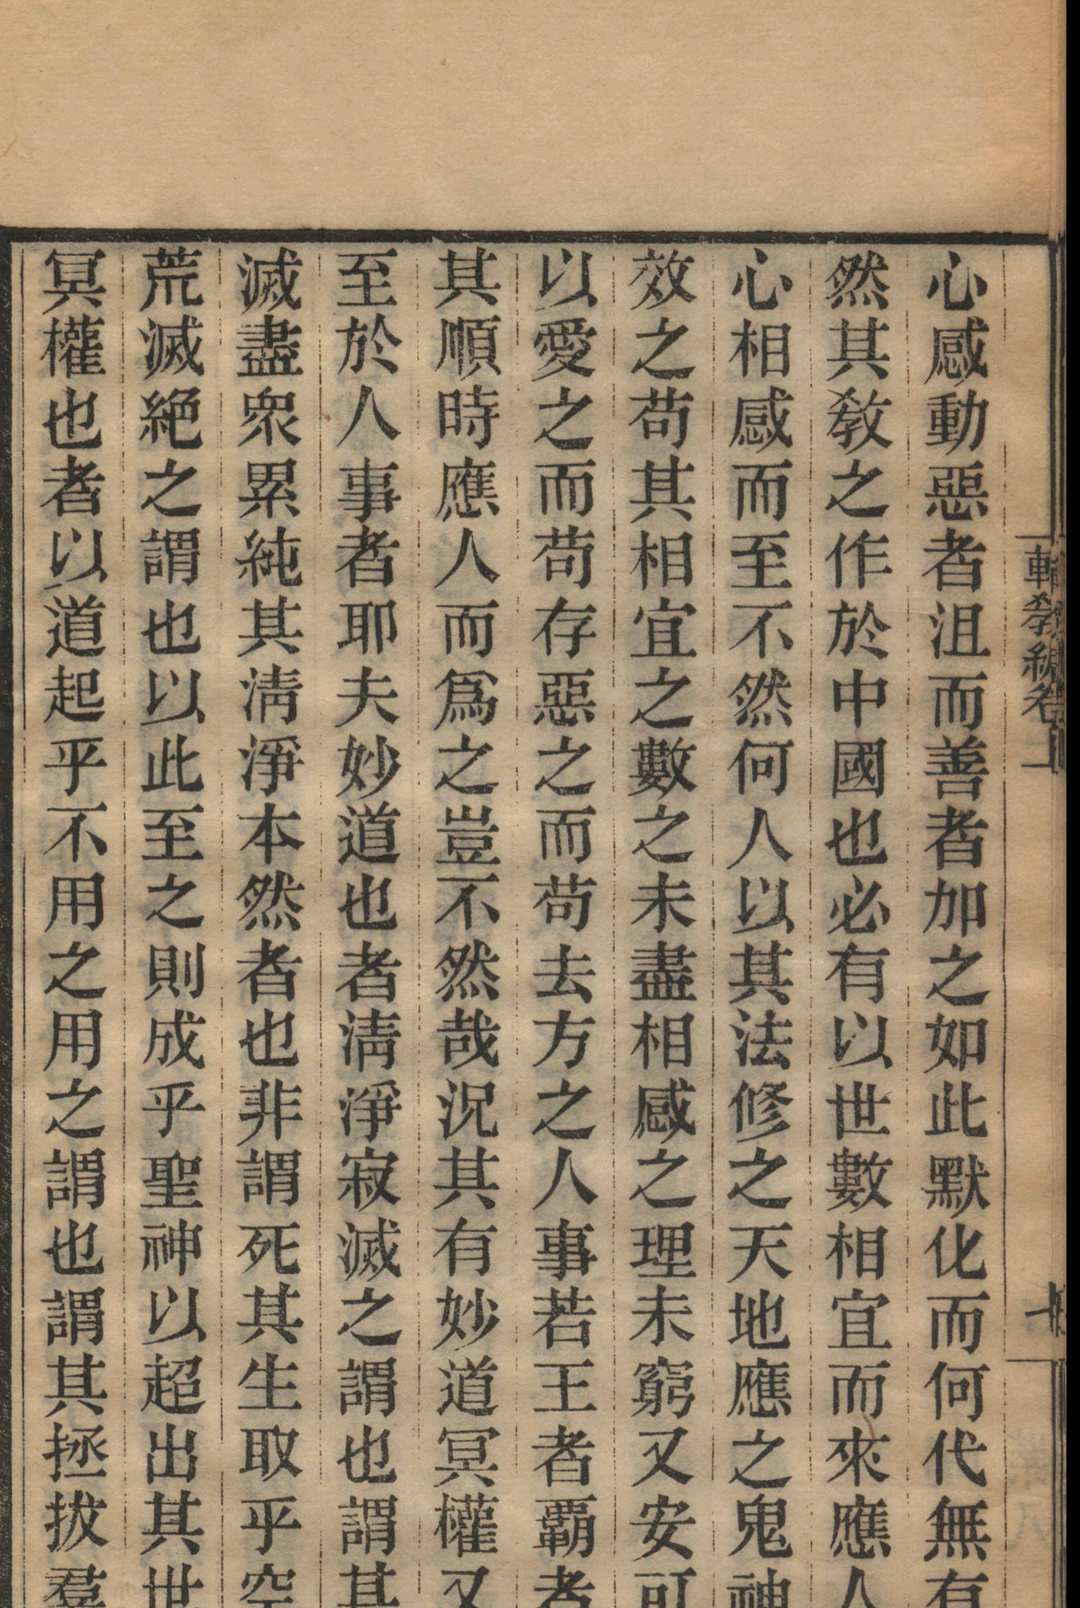 輔教編卷二
心感動惡者沮而善者加之如此默化而何代無有
然其教之作於中國也必有以世數相宜而來應人
心相感而至不然何人以其法修之天地應之鬼神
效之苟其相宜之數之未盡相感之理未窮又安可
以愛之而苟存惡之而苟去方之人事若王者霸者
其順時應人而爲之豈不然哉况其有妙道冥權又
至於人事者耶夫妙道也者淸淨寂滅之謂也謂其
滅盡衆累純其淸淨本然者也非謂死其生取乎空
荒滅絕之謂也以此至之則成乎聖神以超出其世
冥權也者以道起乎不用之用之謂也謂其拯拔羣